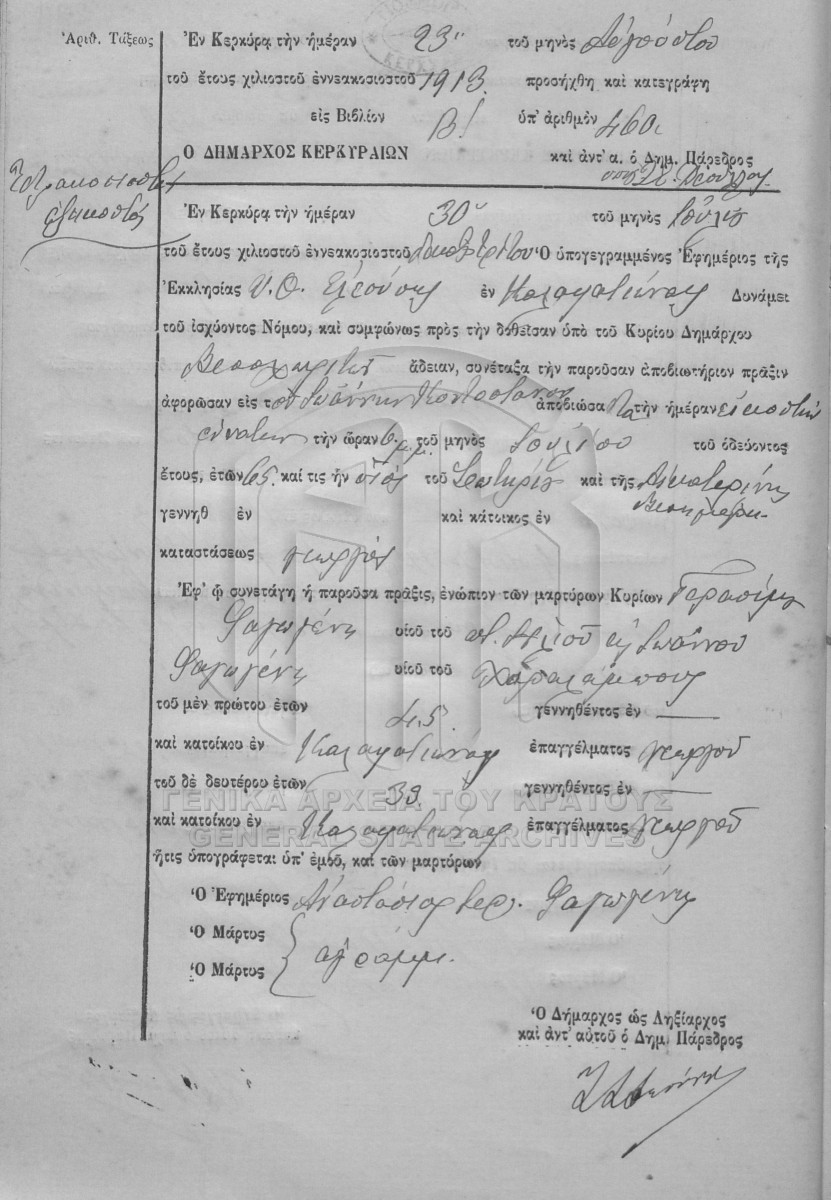 Ἀριθ. Τάξεως
Ἐν Κερκύρᾳ τὴν ἡμέραν 23ῃ τοῦ μηνὸς Αὐγούστου
τοῦ ἔτους χιλιοστοῦ ἐννεακοσιοστοῦ 1913. προσήχθη καὶ κατεγράφη
εἰς Βιβλίον Β! ὑπ' ἀριθμὸν 460.
Ο ΔΗΜΑΡΧΟΣ ΚΕΡΚΥΡΑΙΩΝ καὶ ἀντ' α. ὁ Δημ. Πάρεδρος
Τετρακοσιοστὸς
ἑξηκοστὸς
Ἐν Κερκύρᾳ τὴν ἡμέραν 30ῃ τοῦ μηνὸς Ἰουλίου
τοῦ ἔτους χιλιοστοῦ ἐννεακοσιοστοῦ δεκάτου τρίτου Ὁ ὑπογεγραμμένος Ἐφημέριος τῆς
Ἐκκλησίας Υ. Θ. Ἐλεούσης ἐν Καλαφατιώνας Δυνάμει
τοῦ ἰσχύοντος Νόμου, καὶ συμφώνως πρὸς τὴν δοθεῖσαν ὑπὸ τοῦ Κυρίου Δημάρχου
ἄδειαν, συνέταξα τὴν παροῦσαν ἀποβιωτήριον πρᾶξιν
ἀφορῶσαν εἰς τὸν Ἰωάννην Κοντοστάνον ἀποβιώσαντα τὴν ἡμέραν εἰκοστὴν
ἐνάτην τὴν ὥραν 6 μ.μ. τοῦ μηνὸς Ἰουλίου τοῦ ὁδεύοντος
ἔτους, ἐτῶν 65 καί τις ἦν υἱὸς τοῦ Σωτηρίου καὶ τῆς Αἰκατερίνης
γεννηθ ἐν καὶ κάτοικος ἐν
καταστάσεως γεωργὸς
Ἐφ' ᾧ συνετάγη ἡ παροῦσα πρᾶξις, ἐνώπιον τῶν μαρτύρων Κυρίων Γερασίμου
Φαγωγένη υἱοῦ τοῦ π. Ἠλιοῦ καὶ Ἰωάννου
Φαγωγένη υἱοῦ τοῦ Χαραλάμπους
τοῦ μὲν πρώτου ἐτῶν 45 γεννηθέντος ἐν —
καὶ κατοίκου ἐν Καλαφατιώνας ἐπαγγέλματος γεωργοῦ
τοῦ δὲ δευτέρου ἐτῶν 39 γεννηθέντος ἐν —
ΓΕΝΙΚΑ ΑΡΧΕΙΑ ΤΟΥ ΚΡΑΤΟΥΣ
καὶ κατοίκου ἐν Καλαφατιώνας ἐπαγγέλματος γεωργοῦ
GENERAL STATE ARCHIVES
ἥτις ὑπογράφεται ὑπ' ἐμοῦ, καὶ τῶν μαρτύρων
Ὁ Ἐφημέριος Ἀναστάσιος ἱερ. Φαγωγένης
Ὁ Μάρτυς
ἀγράμμ.
Ὁ Μάρτυς
Ὁ Δήμαρχος ὡς Ληξίαρχος
καὶ ἀντ' αὐτοῦ ὁ Δημ. Πάρεδρος